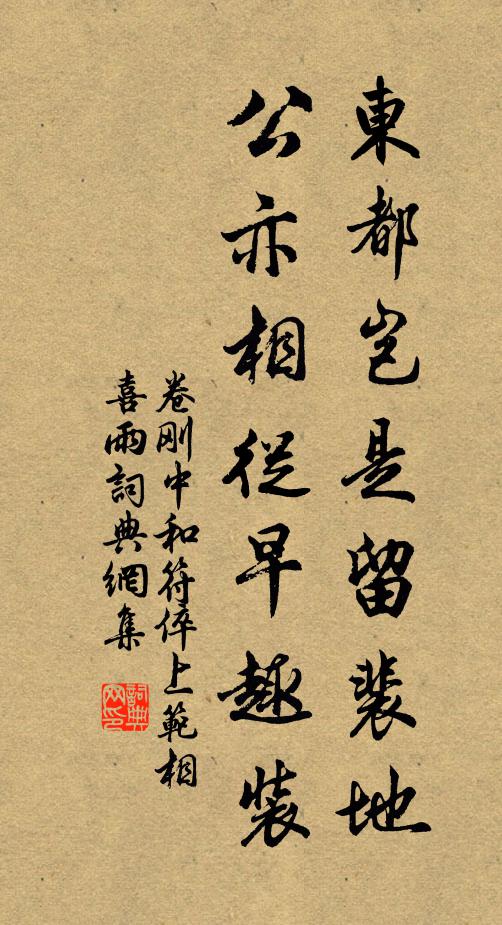 東都豈是留裴地
公亦相從早趣裝
卷刚中和符倅上範相
喜雨詞典網集
詞典网印